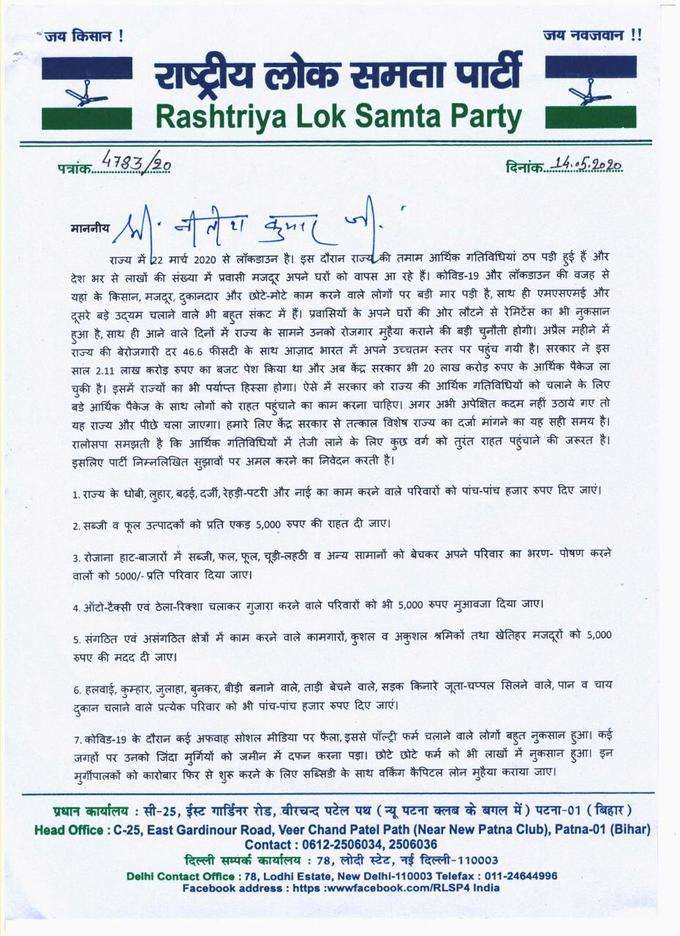 जय किसान !
जय नवजवान !!
राष्ट्रीय लोक समता पार्टी
Rashtriya Lok Samta Party
पत्रांक 4783/20
दिनांक 14.05.2020
माननीय श्री नीतीश कुमार जी.
राज्य में 22 मार्च 2020 से लॉकडाउन है। इस दौरान राज्य की तमाम आर्थिक गतिविधियां ठप पड़ी हुई हैं और
देश भर से लाखों की संख्या में प्रवासी मजदूर अपने घरों को वापस आ रहे हैं। कोविड-19 और लॉकडाउन की वजह से
यहां के किसान, मजदूर, दुकानदार और छोटे-मोटे काम करने वाले लोगों पर बड़ी मार पड़ी है, साथ ही एमएसएमई और
दूसरे बड़े उद्यम चलाने वाले भी बहुत संकट में हैं। प्रवासियों के अपने घरों की ओर लौटने से रेमिटेंस का भी नुकसान
हुआ है, साथ ही आने वाले दिनों में राज्य के सामने उनको रोजगार मुहैया कराने की बड़ी चुनौती होगी। अप्रैल महीने में
राज्य की बेरोजगारी दर 46.6 फीसदी के साथ आज़ाद भारत में अपने उच्चतम स्तर पर पहुंच गयी है। सरकार ने इस
साल 2.11 लाख करोड़ रुपए का बजट पेश किया था और अब केंद्र सरकार भी 20 लाख करोड़ रुपए के आर्थिक पैकेज ला
चुकी है। इसमें राज्यों का भी पर्याप्त हिस्सा होगा। ऐसे में सरकार को राज्य की आर्थिक गतिविधियों को चलाने के लिए
बडे आर्थिक पैकेज के साथ लोगों को राहत पहुंचाने का काम करना चाहिए। अगर अभी अपेक्षित कदम नहीं उठाये गए तो
यह राज्य और पीछे चला जाएगा। हमारे लिए केंद्र सरकार से तत्काल विशेष राज्य का दर्जा मांगने का यह सही समय है।
रालोसपा समझती है कि आर्थिक गतिविधियों में तेजी लाने के लिए कुछ वर्ग को तुरंत राहत पहुंचाने की जरूरत है।
इसलिए पार्टी निम्नलिखित सुझावों पर अमल करने का निवेदन करती है।
1. राज्य के धोबी, लुहार, बढ़ई, दर्जी, रेहड़ी-पटरी और नाई का काम करने वाले परिवारों को पांच-पांच हजार रुपए दिए जाएं।
2. सब्जी व फूल उत्पादकों को प्रति एकड़ 5,000 रुपए की राहत दी जाए।
3. रोजाना हाट-बाजारों में सब्जी, फल, फूल, चूड़ी-लहठी व अन्य सामानों को बेचकर अपने परिवार का भरण- पोषण करने
वालों को 5000/- प्रति परिवार दिया जाए।
4. ऑटो-टैक्सी एवं ठेला-रिक्शा चलाकर गुजारा करने वाले परिवारों को भी 5,000 रुपए मुआवजा दिया जाए।
5. संगठित एवं असंगठित क्षेत्रों में काम करने वाले कामगारों, कुशल व अकुशल श्रमिकों तथा खेतिहर मजदूरों को 5,000
रुपए की मदद दी जाए।
6. हलवाई, कुम्हार, जुलाहा, बुनकर, बीड़ी बनाने वाले, ताड़ी बेचने वाले, सड़क किनारे जूता-चप्पल सिलने वाले, पान व चाय
दुकान चलाने वाले प्रत्येक परिवार को भी पांच-पांच हजार रुपए दिए जाएं।
7. कोविड-19 के दौरान कई अफवाह सोशल मीडिया पर फैला, इससे पॉल्ट्री फर्म चलाने वाले लोगों बहुत नुकसान हुआ। कई
जगहों पर उनको जिंदा मुर्गियों को जमीन में दफन करना पड़ा। छोटे छोटे फर्म को भी लाखों में नुकसान हुआ। इन
मुर्गीपालकों को कारोबार फिर से शुरू करने के लिए सब्सिडी के साथ वर्किंग कैपिटल लोन मुहैया कराया जाए।
प्रधान कार्यालय : सी-25, ईस्ट गार्डिनर रोड, वीरचन्द पटेल पथ ( न्यू पटना क्लब के बगल में ) पटना-01 ( बिहार )
Head Office : C-25, East Gardinour Road, Veer Chand Patel Path (Near New Patna Club), Patna-01 (Bihar)
Contact : 0612-2506034, 2506036
दिल्ली सम्पर्क कार्यालय : 78, लोदी स्टेट, नई दिल्ली-110003
Delhi Contact Office : 78, Lodhi Estate, New Delhi-110003 Telefax : 011-24644996
Facebook address : https :wwwfacebook.com/RLSP4 India